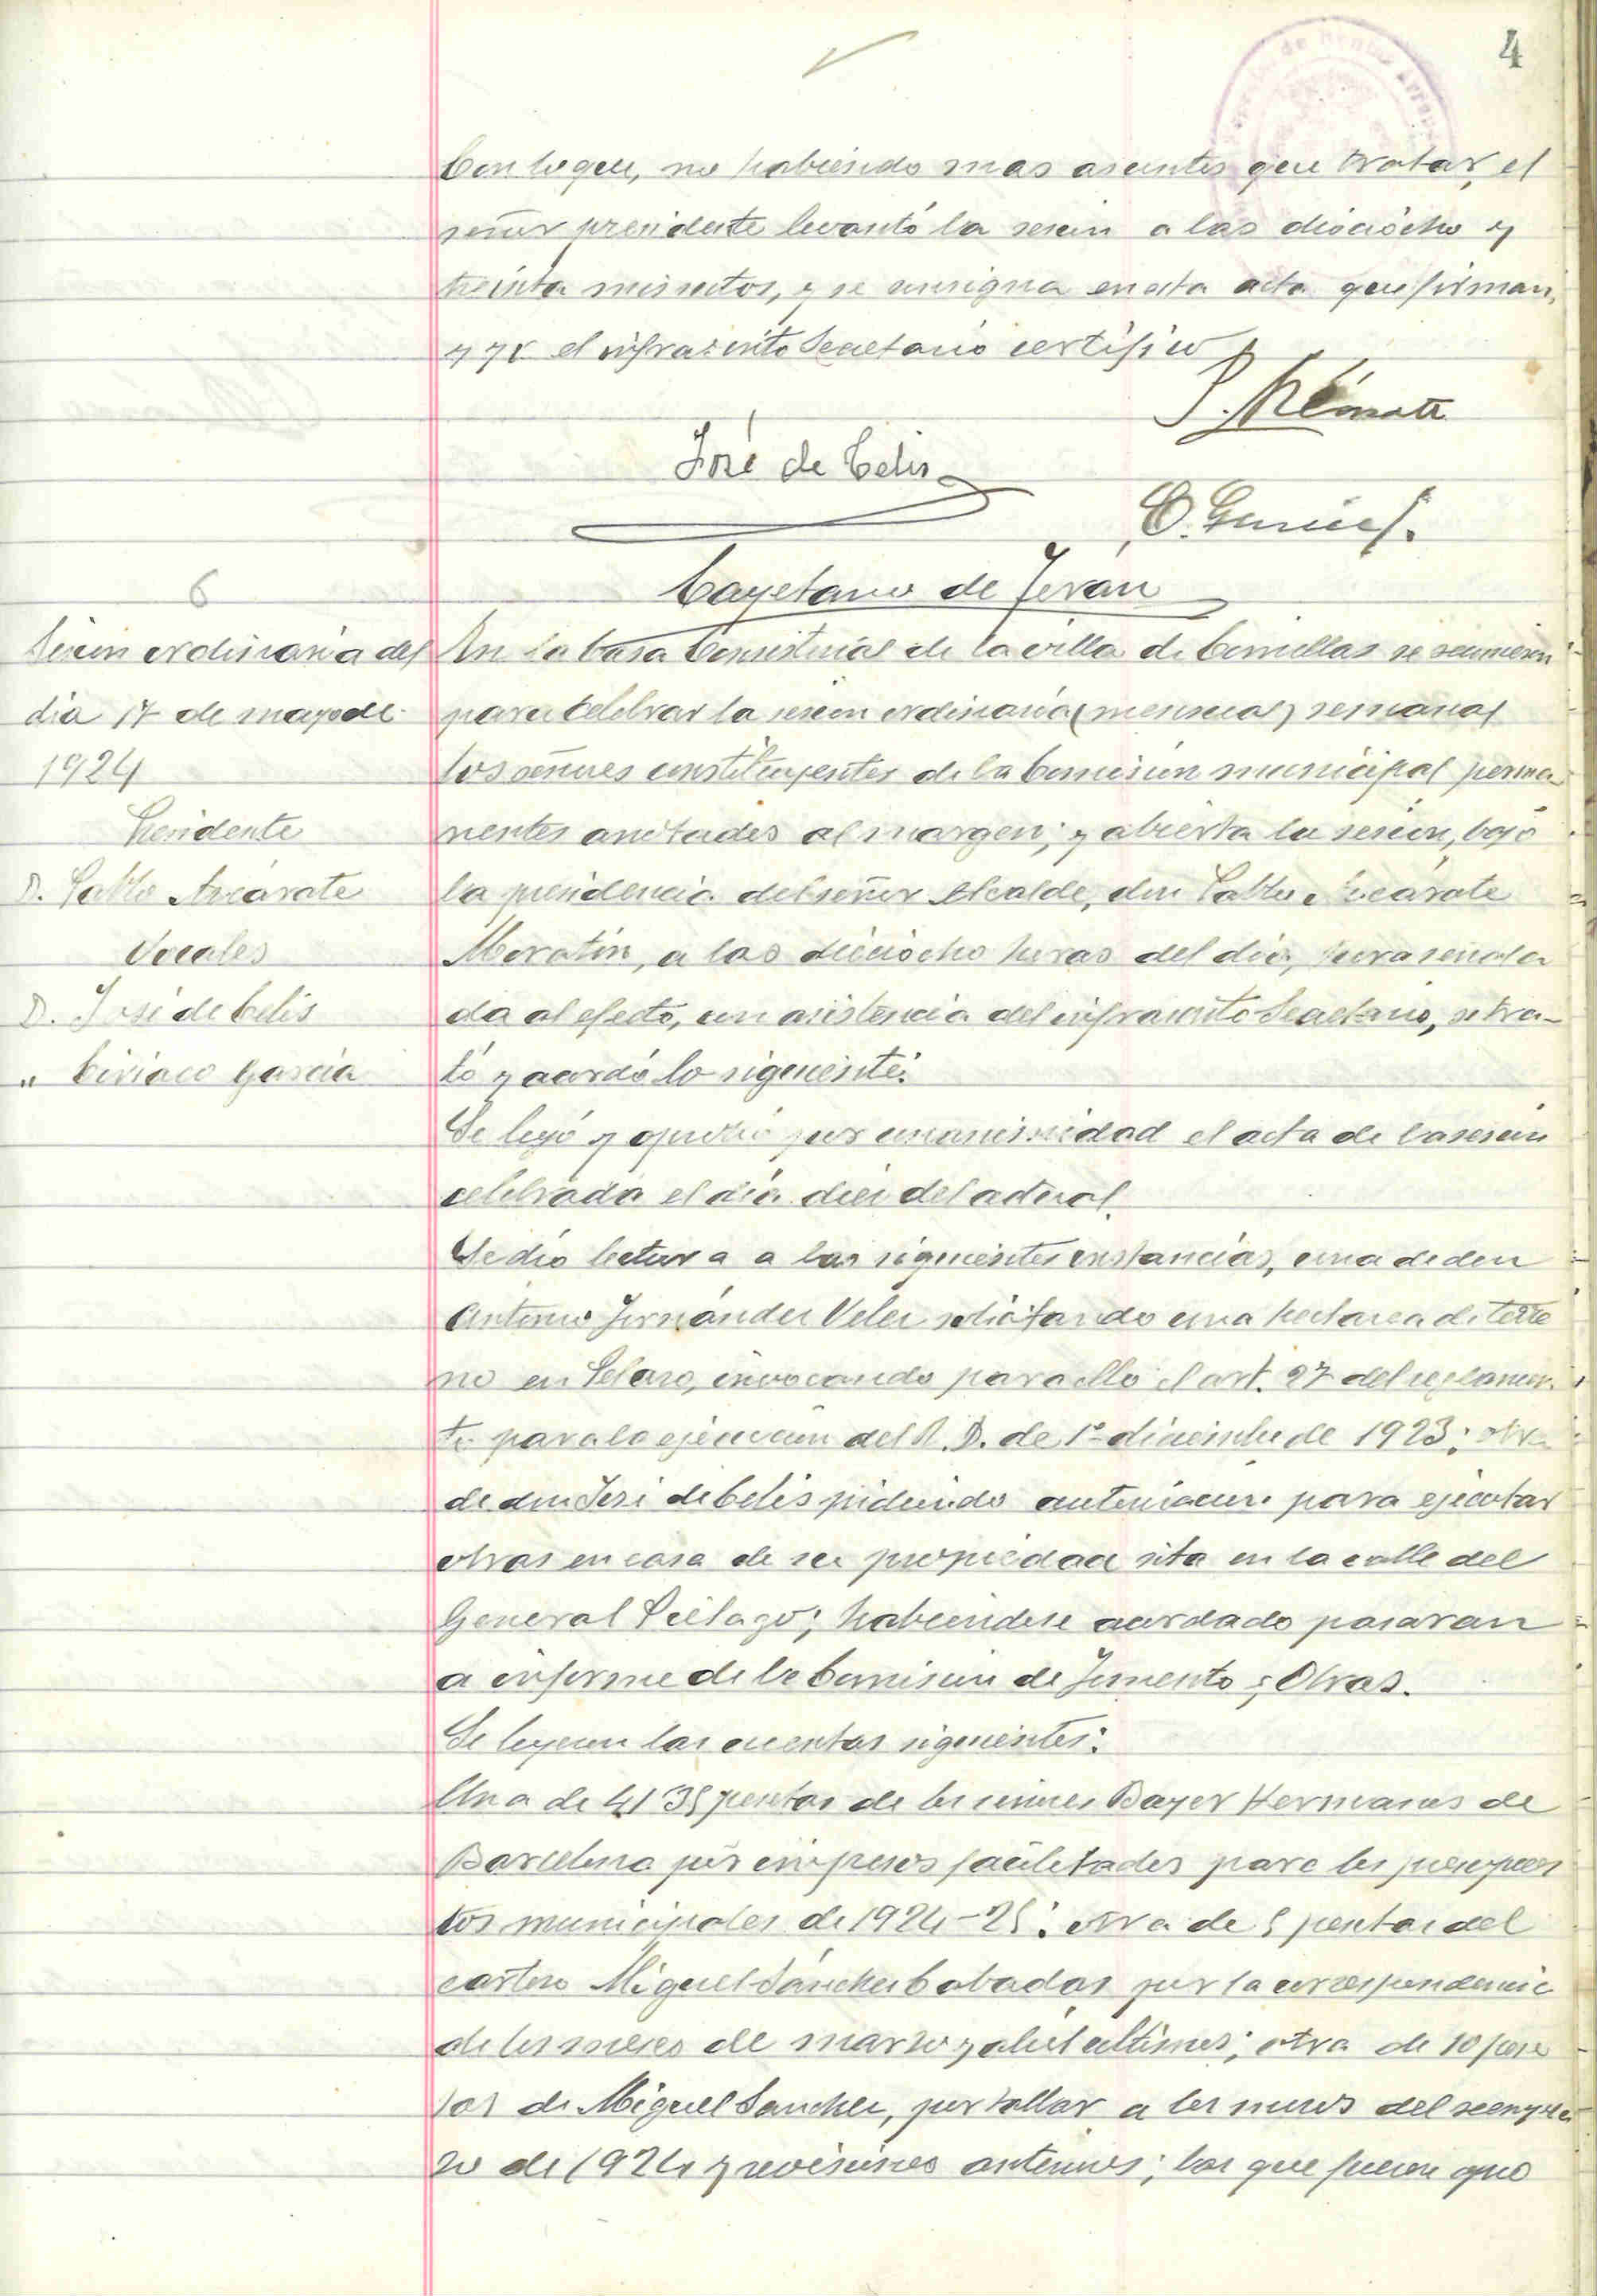 4
Con lo que, no habiendo mas asuntos que tratar, el
señor presidente levantó la sesion a las dieciócho y
treinta minutos, y se consigna en esta acta que firman,
y yo el infrascrito Secretario certifico
José de Celis
C. García
Cayetano de Terán
6
Sesion ordinaria del
dia 17 de mayo de
1924
Presidente
D. Pablo Azcárate
Vocales
D. José de Celis
" Ciriaco García
En la Casa Consistorial de la villa de Comillas se reunieron
para celebrar la sesion ordinaria (mensual) semanal
los señores constituyentes de la Comisión municipal perma
nentes anotados al margen; y abierta la sesion, bajo
la presidencia del señor Alcalde, don Pablo Azcárate
Moratin, a las dieciocho horas del dia, hora señala
da al efecto, con asistencia del infrascrito Secretario, se tra-
tó y acordó lo siguiente:
Se leyó y aprobó por unanimidad el acta de la sesion
celebrada el día diez del actual.
Se dio lectura a las siguientes instancias, una de don
Antonio Fernández Velez solicitando una hectarea de terre
no en Pelaro, invocando para ello el art. 27 del reglamen
to para la ejecucion del R. D. de 1º diciembre de 1923; otra
de don José de Celis pidiendo autorizacion para ejecutar
obras en casa de su propiedad sita en la calle del
General Piélago; habiendose acordado pasaran
a informe de la Comision de Fomento y Obras.
Se leyeron las cuentas siguientes:
Una de 41'35 pesetas de los señores Bayer Hermanos de
Barcelona por impresos facilitados para los presupues
tos municipales de 1924-25; otra de 5 pesetas del
cartero Miguel Sánchez Cabadas por la correspondencia
de los meses de marzo y abril ultimos; otra de 10 pese
tas de Miguel Sanchez, por tallar a los mozos del reempla
zo de 1924 y revisiones anteriores; las que fueron apro